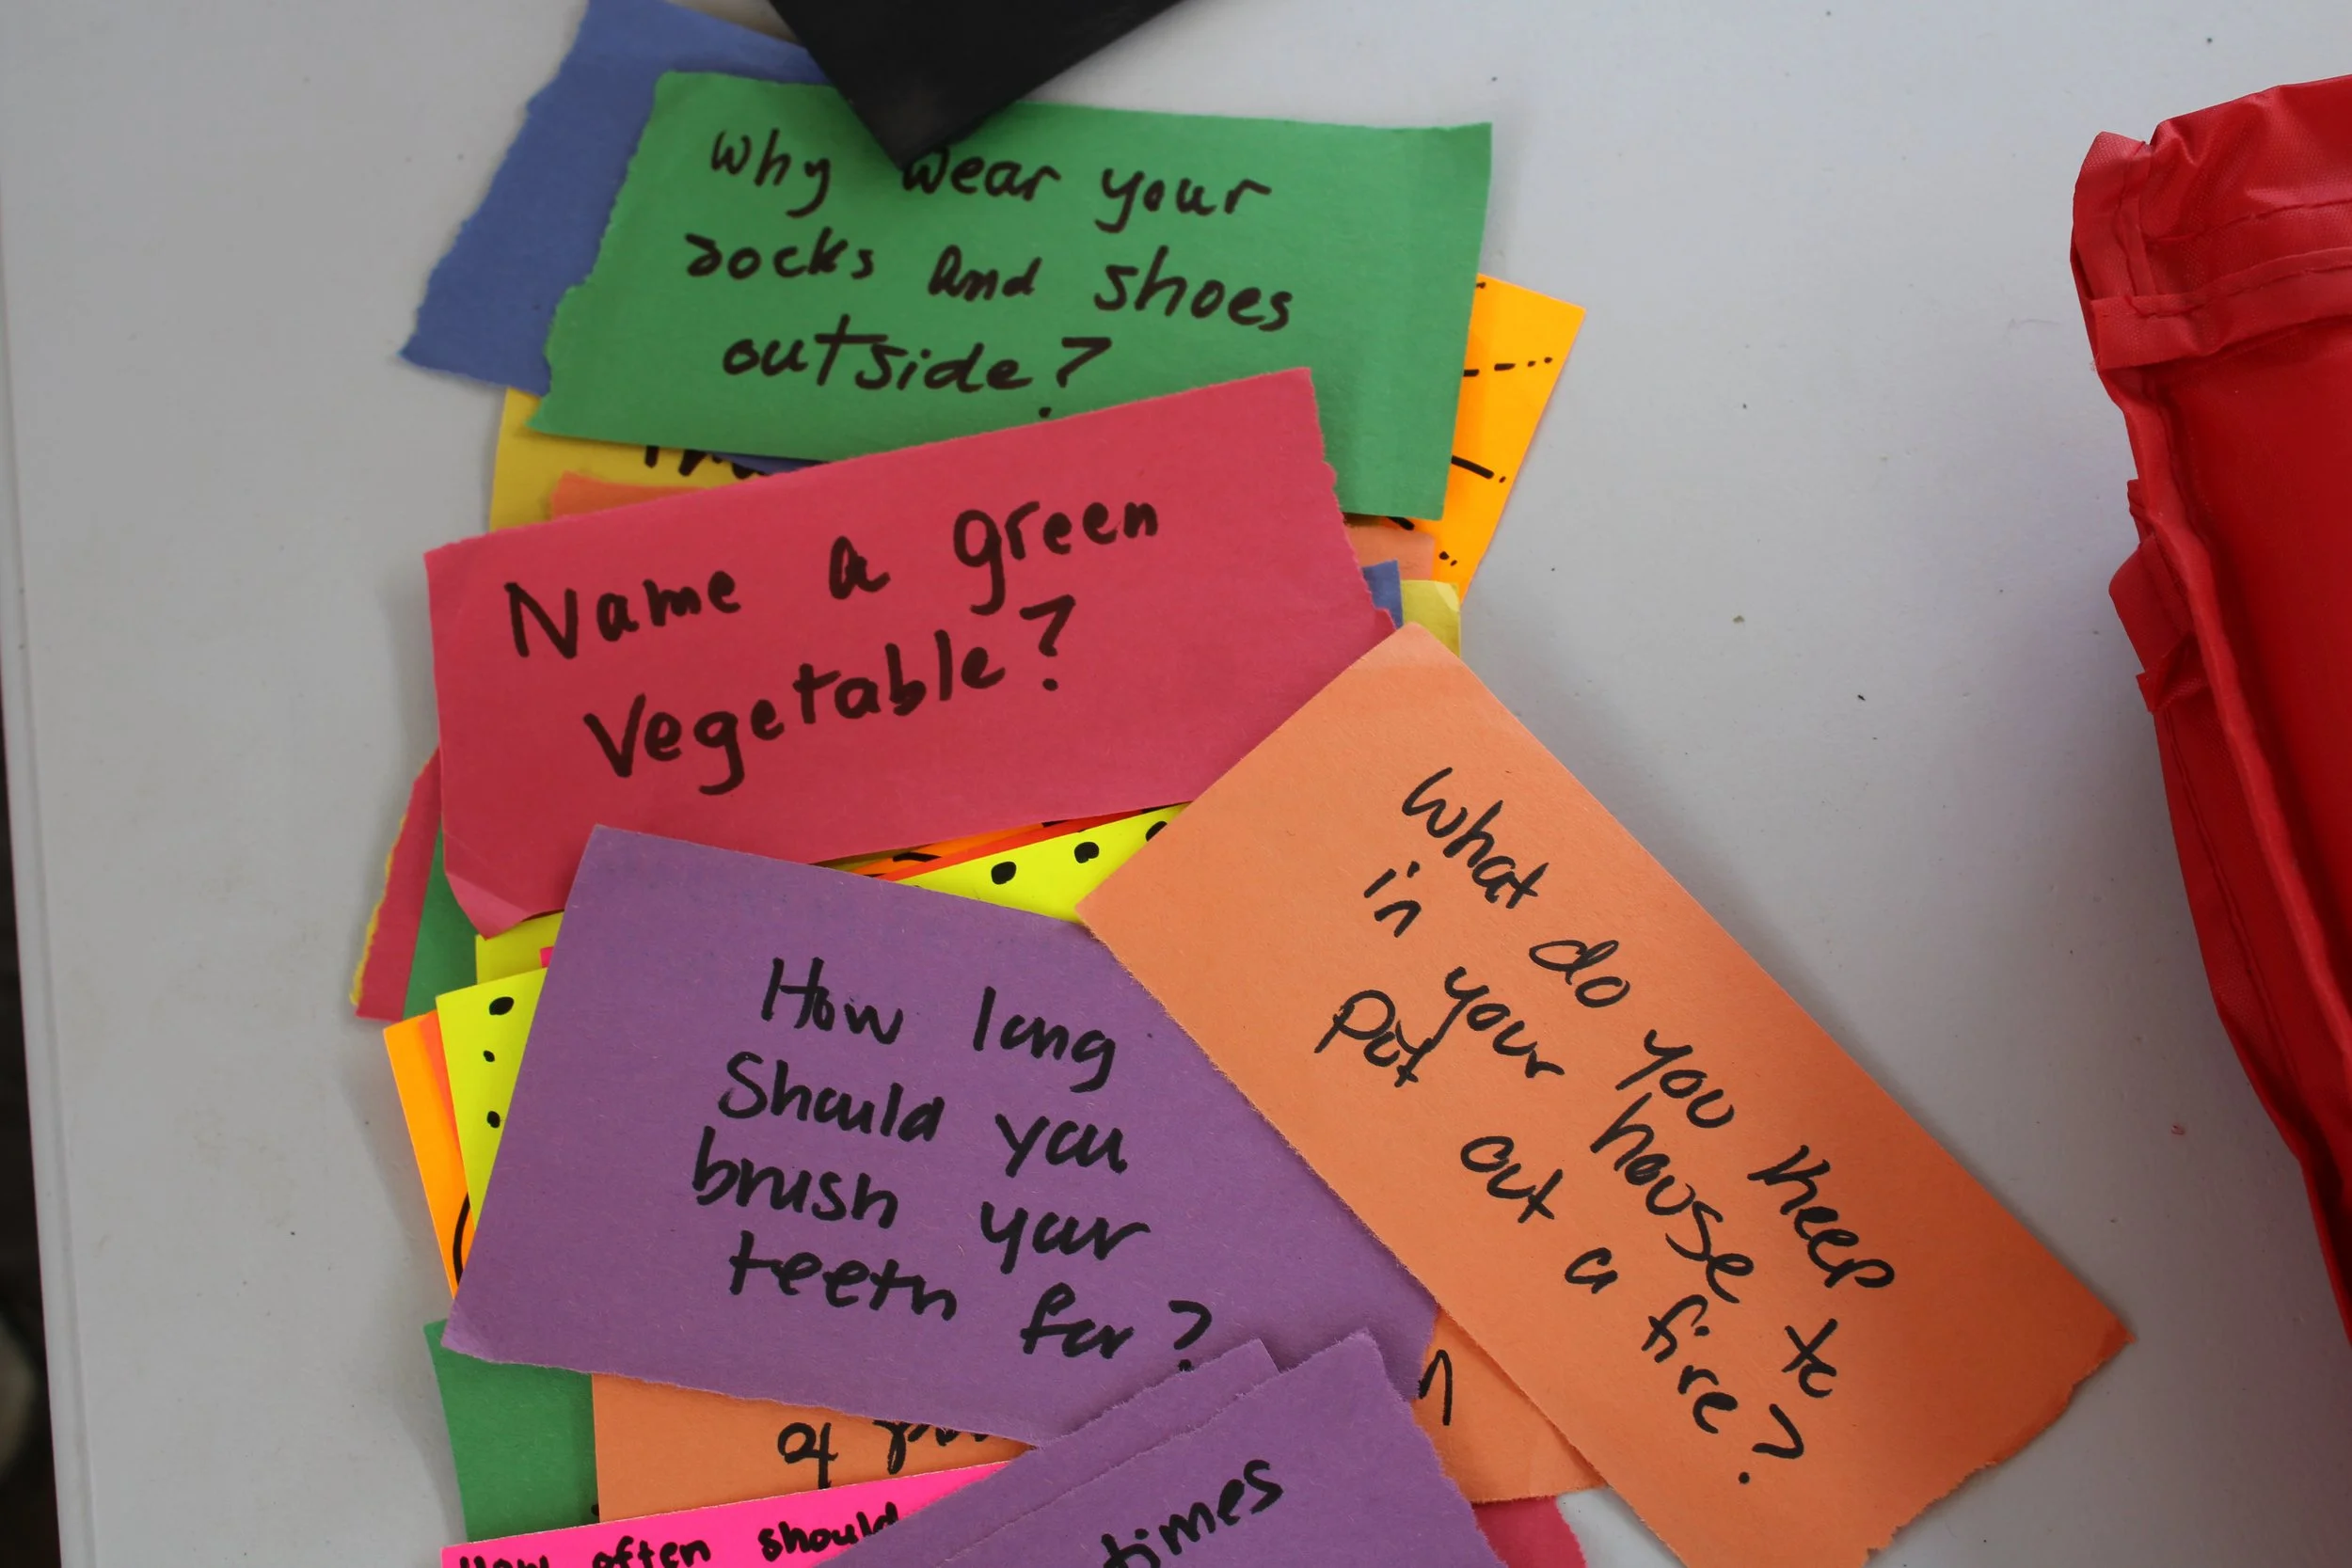 Why wear your
socks and shoes
outside?
Name a green
Vegetable?
What do you keep
in your house to
put out a fire?
How long
Should you
brush your
teeth for?
How often should
times